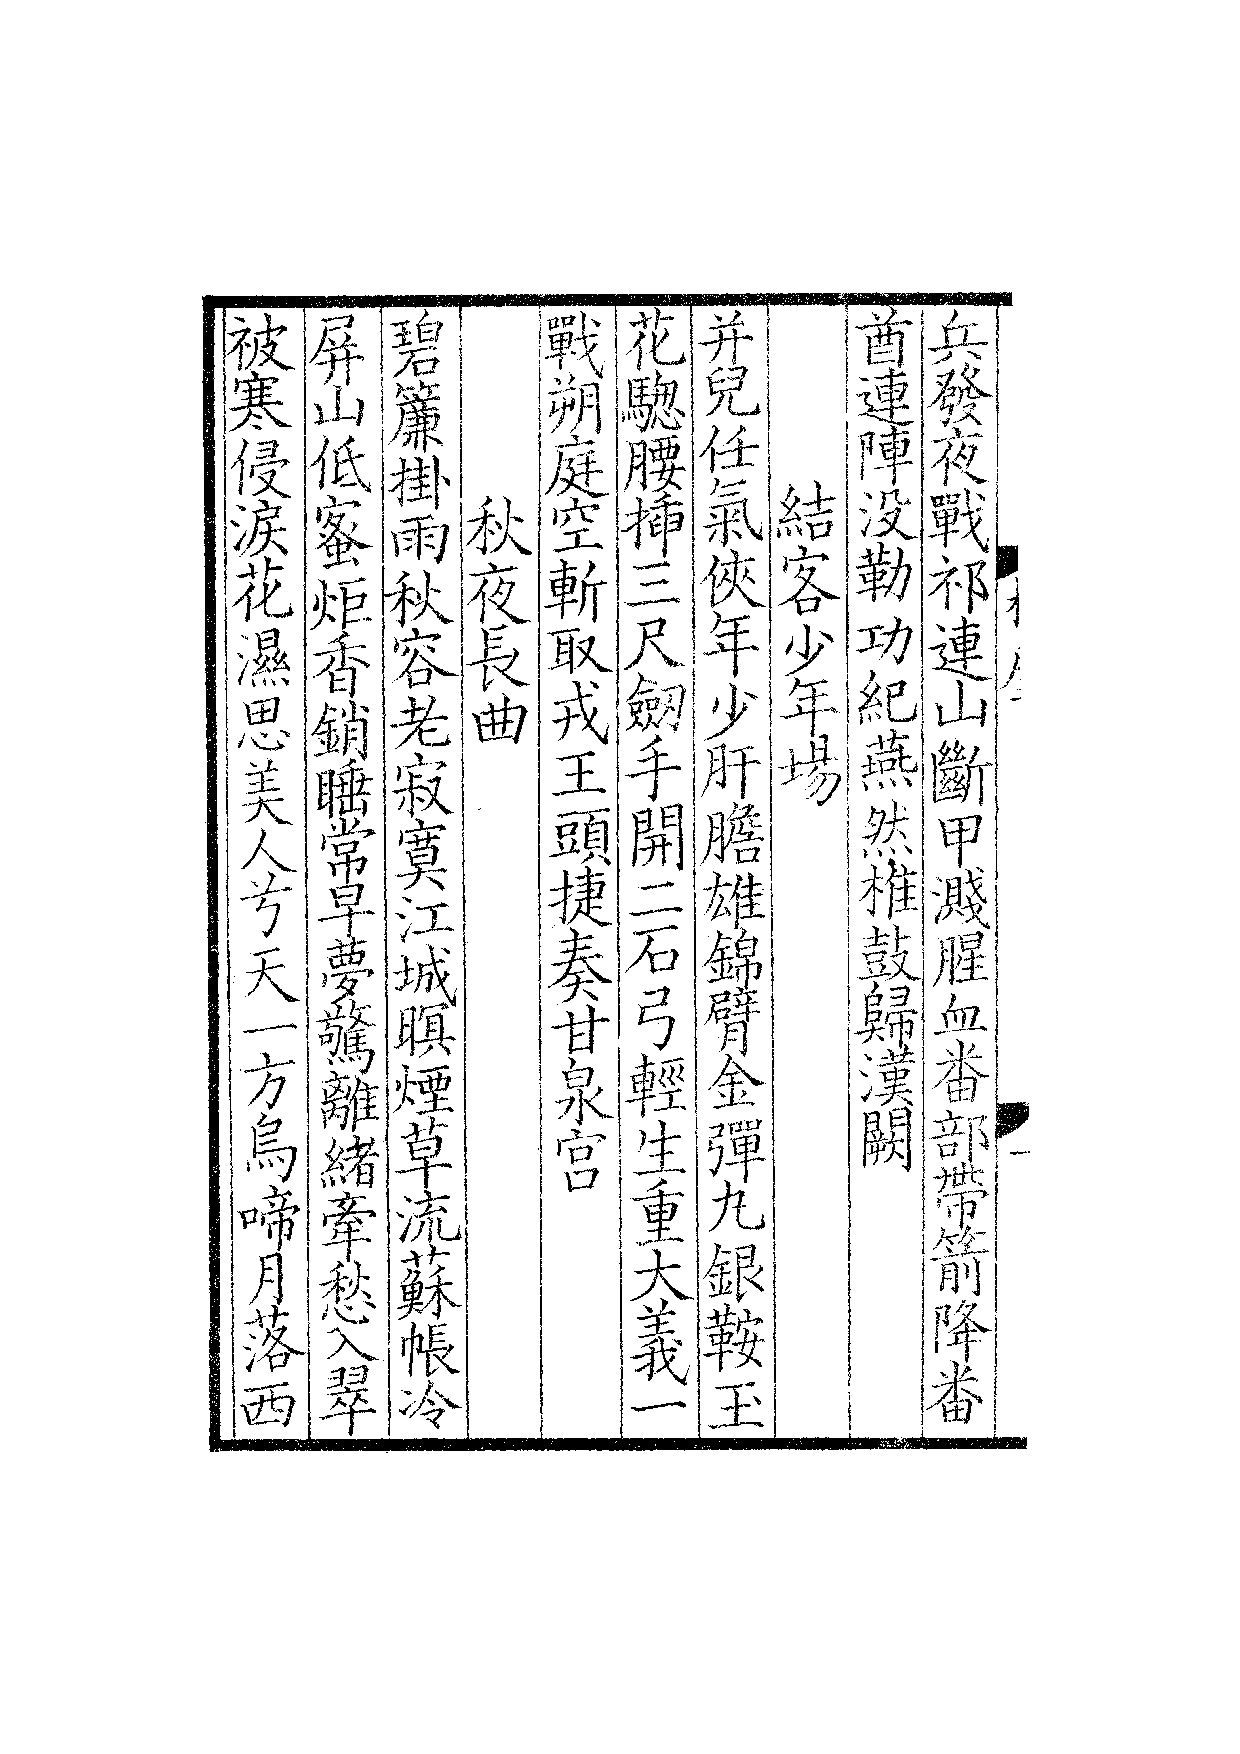 兵發夜戰祁連山斷甲濺腥血番部帶箭降番
酋連陣没勒功紀燕然椎鼓歸漢闕
結客少年場
并兒任氣俠年少肝膽雄錦臂金彈丸銀鞍玉
花驄腰挿三尺劒手開二石弓輕生重大義一
戰朔庭空斬取戎王頭捷奏甘泉宫
秋夜長曲
碧簾掛雨秋容老寂寞江城暝煙草流蘇帳冷
屏山低蜜炬香銷睡常早夢驚離緒牽愁入翠
被寒侵淚花濕思美人兮天一方烏啼月落西